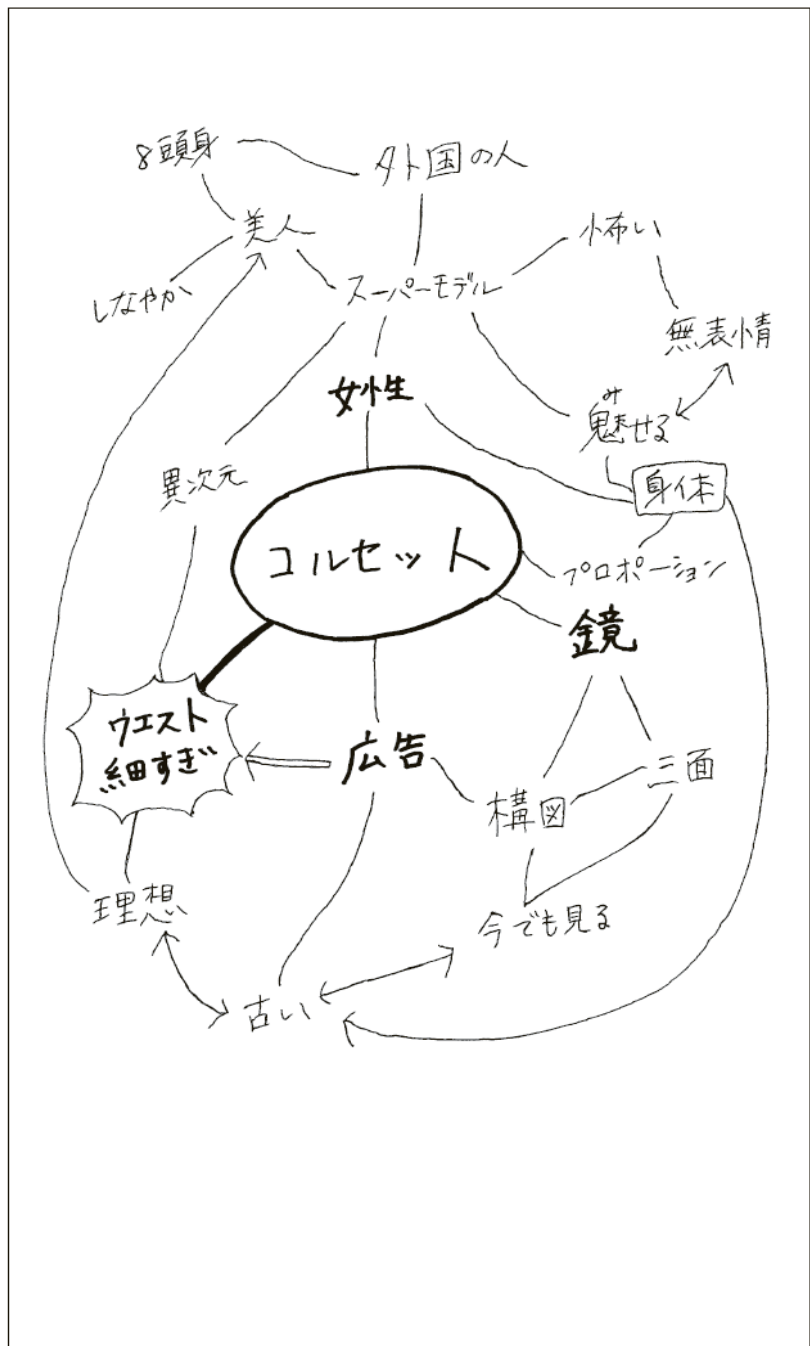 8頭身
外国の人
美人
怖い
しなやか
スーパーモデル
無表情
女性
み
魅せる
異次元
身体
コルセット
プロポーション
鏡
ウエスト
細すぎ
広告
三面
構図
理想
今でも見る
古い